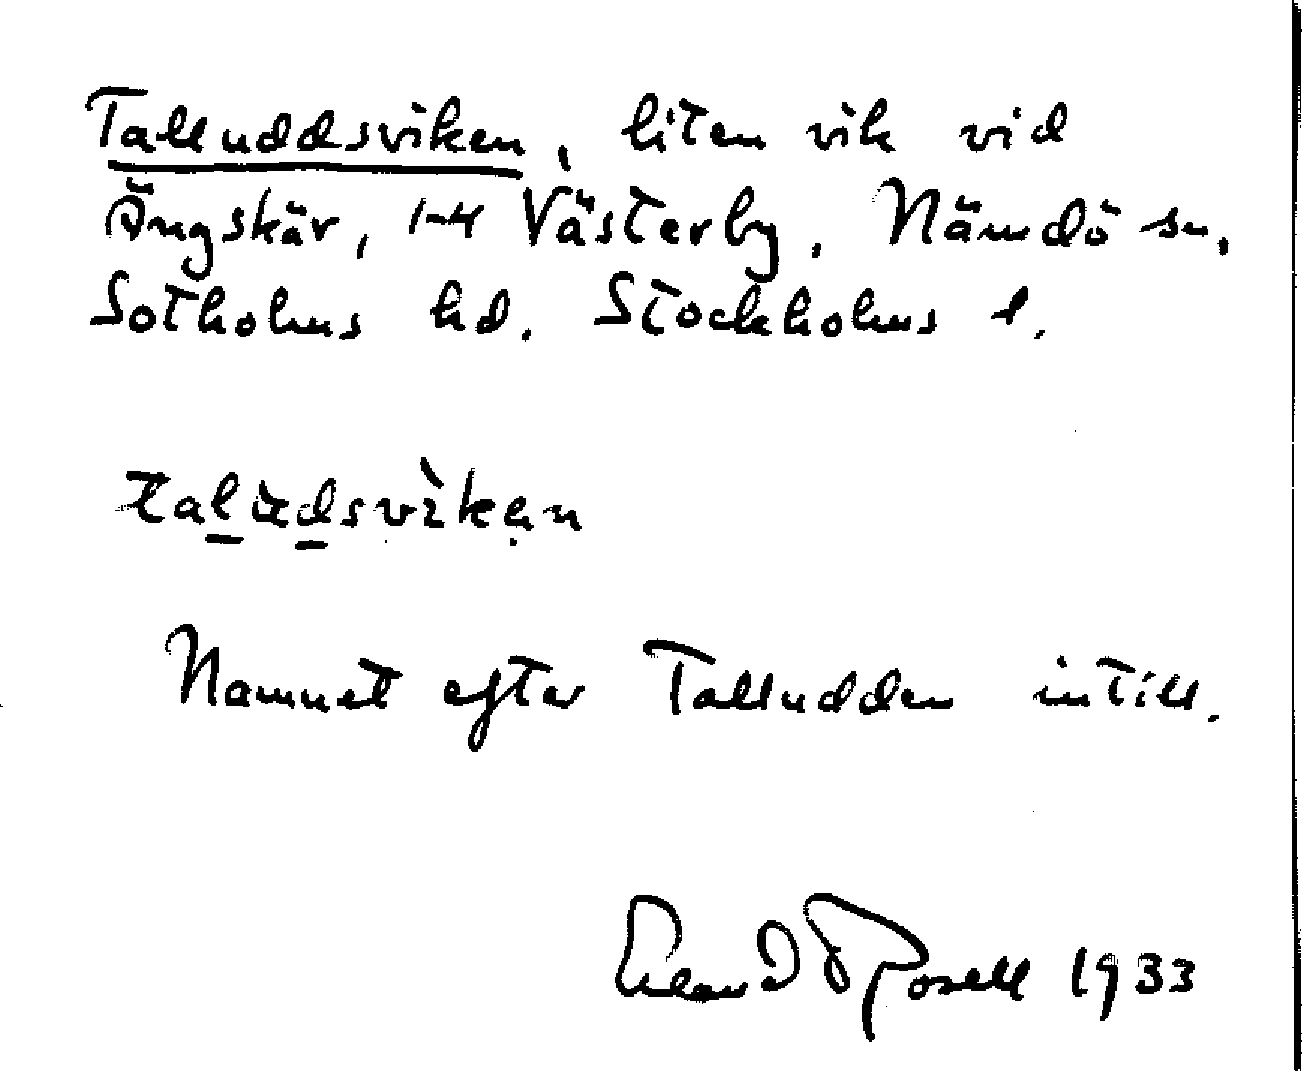 Talluddsviken, liten vik vid
Ängskär, 1-4 Västerby, Nämdö sn,
Sotholms hd. Stockholms l.
talu̇dsvìkẹn
Namnet efter Talludden intill.
Rosell 1933